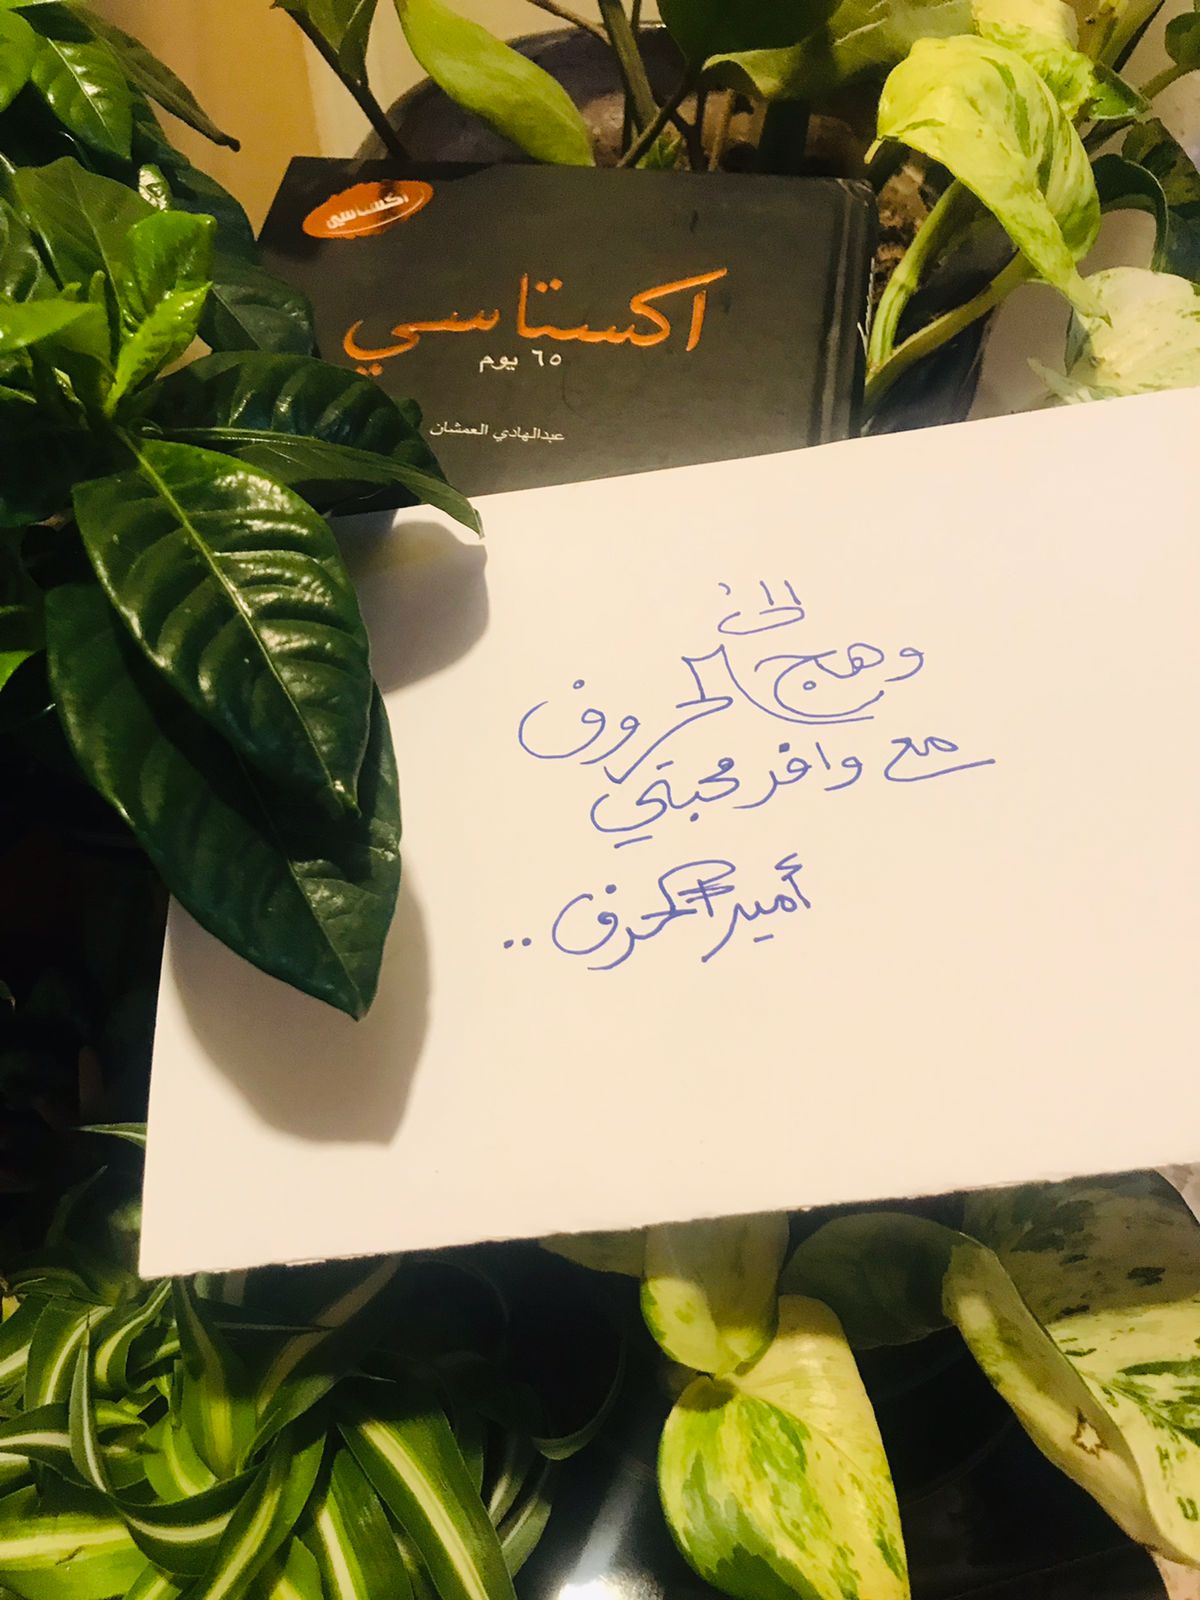 اكستاسي
اكستاسي
٦٥ يوم
عبدالهادي العمشان
الى
وهج الحروف
مع وافر محبتي
أمير الحرف ..